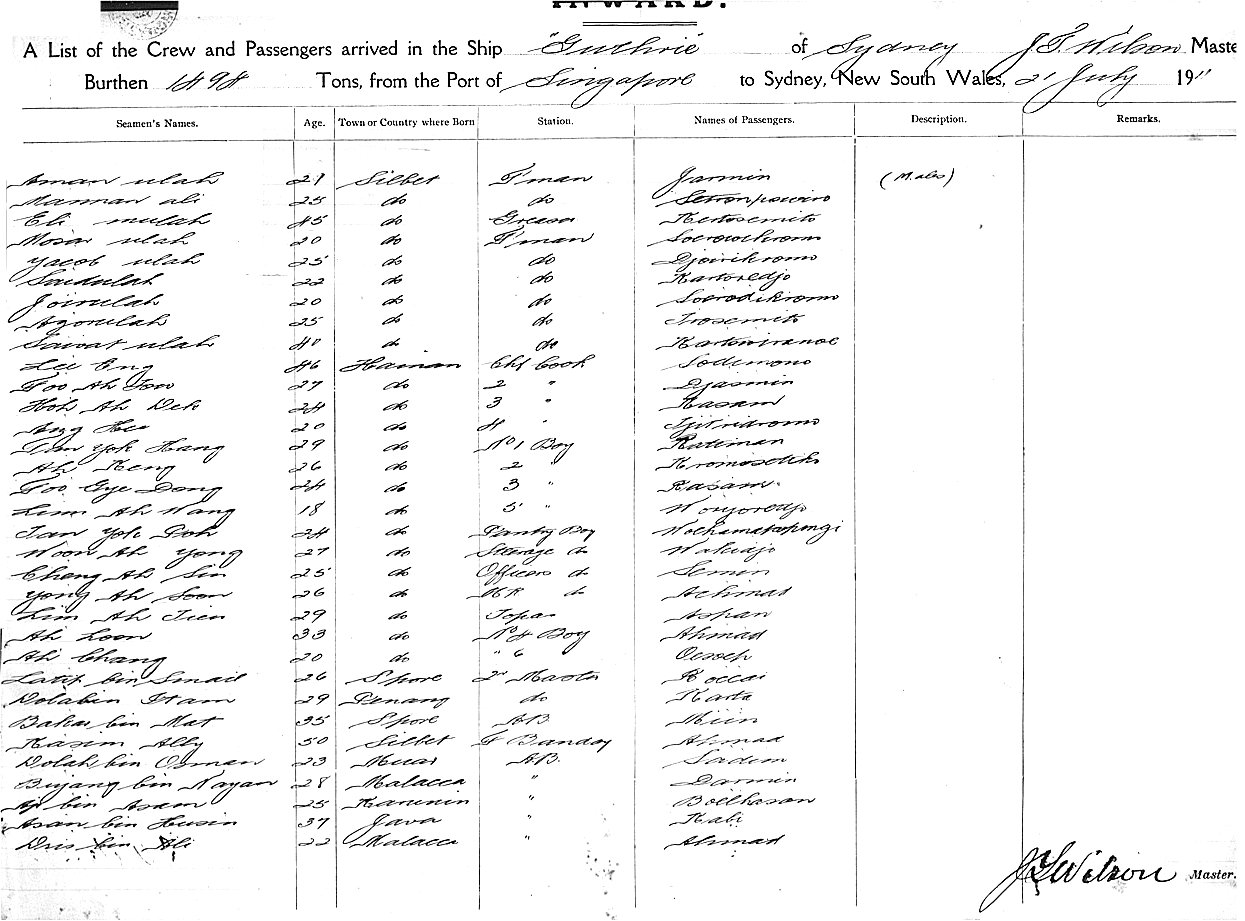 INWARD.
A List of the Crew and Passengers arrived in the Ship "Guthrie" of Sydney J. S. Wilson Maste
Burthen 1898 Tons, from the Port of Singapore to Sydney, New South Wales, 21 July 1911
Seamen's Names. Age. Town or Country where Born Station. Names of Passengers. Description. Remarks.
Aman ulah 21 Silbet F'man Jasmin (Males)
Mannan ali 25 do do
Eli mulah 45 do Greaser Kertosemito
Mosa ulah 20 do F'man
Yacob ulah 25 do do Djoirikromo
Saidulah 22 do do Kartoredjo
Joinulah 20 do do Soerodikromo
Azorulah 25 do do Trosemito
Sawat ulah 40 do do
Lee Eng 46 Hainan Chf Cook Sodimono
Foo Ah Fow 27 do 2 " Djasmin
Hoh Ah Dek 24 do 3 " Kasam
Ang Hee 20 do 4 "
Lim Yok Hang 29 do No 1 Boy Katiman
Ah Keng 26 do 2 "
Foo Gye Dong 24 do 3 " Kasam
Lim Ah Wang 18 do 5 "
Tan Yok Poh 24 do Pantry Boy
Woon Ah Yong 27 do Steerage do Wakidjo
Cheng Ah Sin 25 do Officers do Semin
Yong Ah Soon 26 do do Achmat
Lim Ah Tien 29 do Topas Aspan
Ah Loon 33 do No 4 Boy Ahmad
Ah Chang 20 do " 6 Oesoep
Latip bin Smail 26 Spore
Dolabin Itam 29 Penang do Karta
Bakar bin Mat 35 Spore AB
Kasim Ally 50 Silbet Ahmad
Dolah bin Osman 23 Muar AB. Sadem
Bujang bin Nayan 28 Malacca " Darmin
bin Asam 25 " Boelhasan
Asan bin Husin 37 Java " Kabi
Dris bin Ali 22 Malacca " Ahmad
J S Wilson Master.